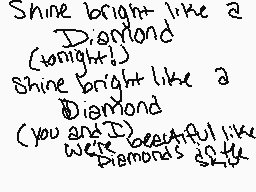 Shine bright like a
Diamond
(tonight!)
Shine bright like a
Diamond
(you and I)
We're beautiful like
Diamonds in the
sky